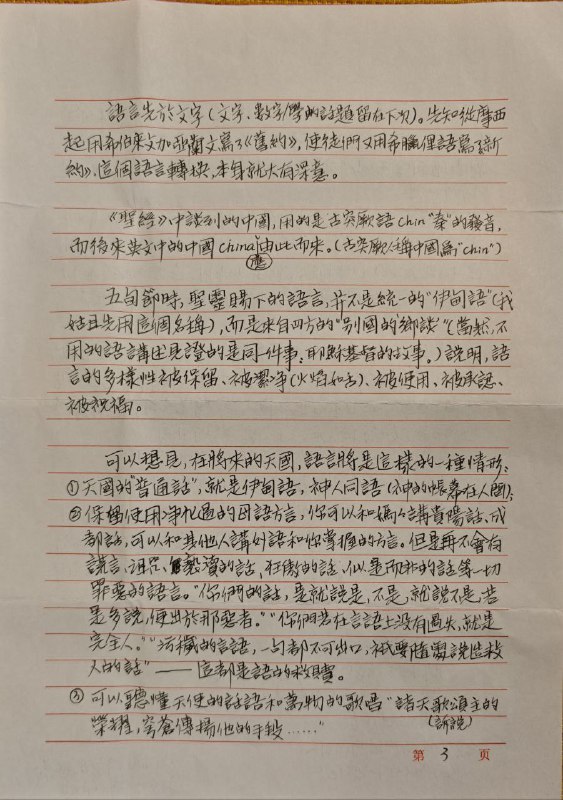 語言先於文字(文字、數字學的話題留在下次)。先知從摩西
起用希伯來文加亞蘭文寫了《舊約》,使徒們又用希臘俚語寫了新
約》,這個語言轉換,本身就大有深意。
《聖經》中談到的中國,用的是古突厥語chin"秦"的發音,
而後來英文中的中國china應由此而來。(古突厥人稱中國為"chin")
五旬節時,聖靈賜下的語言,並不是統一的"伊甸語"(我
姑且先用這個名稱),而是來自四方的"別國的鄉談"(當然,不
用的語言講述見證的是同一件事:耶穌基督的故事。)說明,語
言的多樣性被保留、被潔淨(火焰如舌)、被使用、被承認、
被祝福。
可以想見,在將來的天國,語言將是這樣的一種情形:
①天國的"普通話",就是伊甸語,神人同語(神的帳幕在人間);
②保留使用淨化過的母語方言,你可以和媽媽講貴陽話、成
都話,可以和其他人講外語和你掌握的方言。但是再不會有
謊言、詛咒、褻瀆的話、狂傲的話、似是而非的話等一切
罪惡的語言。"你們的話,是,就說是,不是,就說不是,若
是多說,便出於那惡者。""你們若在言語上沒有過失,就是
完全人。""污穢的言語,一句都不可出口,祇要隨需說造就
人的話"——這都是語言的救贖。
③可以聽懂天使的話語和萬物的歌唱"諸天歌頌主的
(訴說)
榮耀,穹蒼傳揚他的手段……"
第 3 页